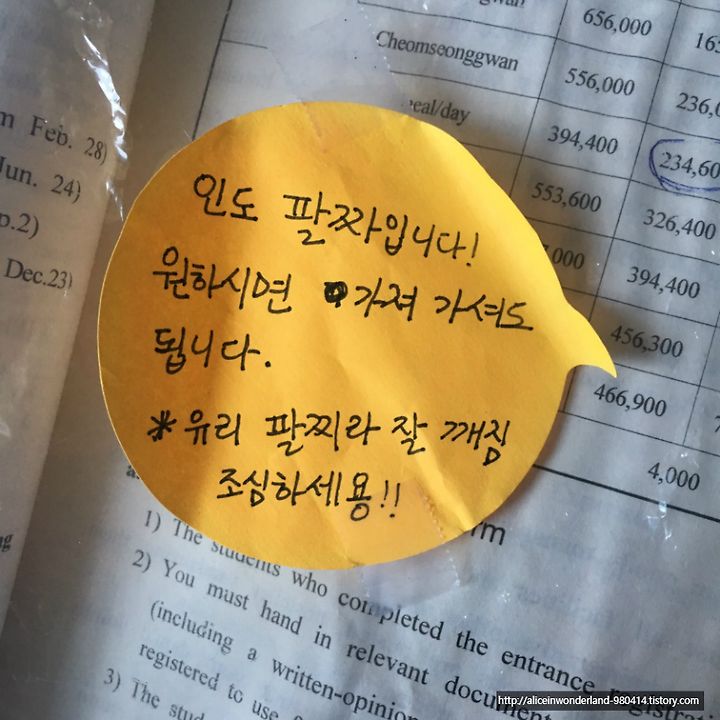 656,000
Cheomseonggwan
556,000
236,0
m Feb. 28)
eal/day
394,400
234,60
Jun. 24)
553,600
326,400
p.2)
,000
394,400
Dec.23)
456,300
466,900
4,000
인도 팔찌입니다!
원하시면 가져 가셔도
됩니다.
*유리 팔찌라 잘 깨짐
조심하세용!!
rm
1) The students who completed the entrance
2) You must hand in relevant
(including a written-opinion
registered to use
3) The
http://aliceinwonderland-980414.tistory.com